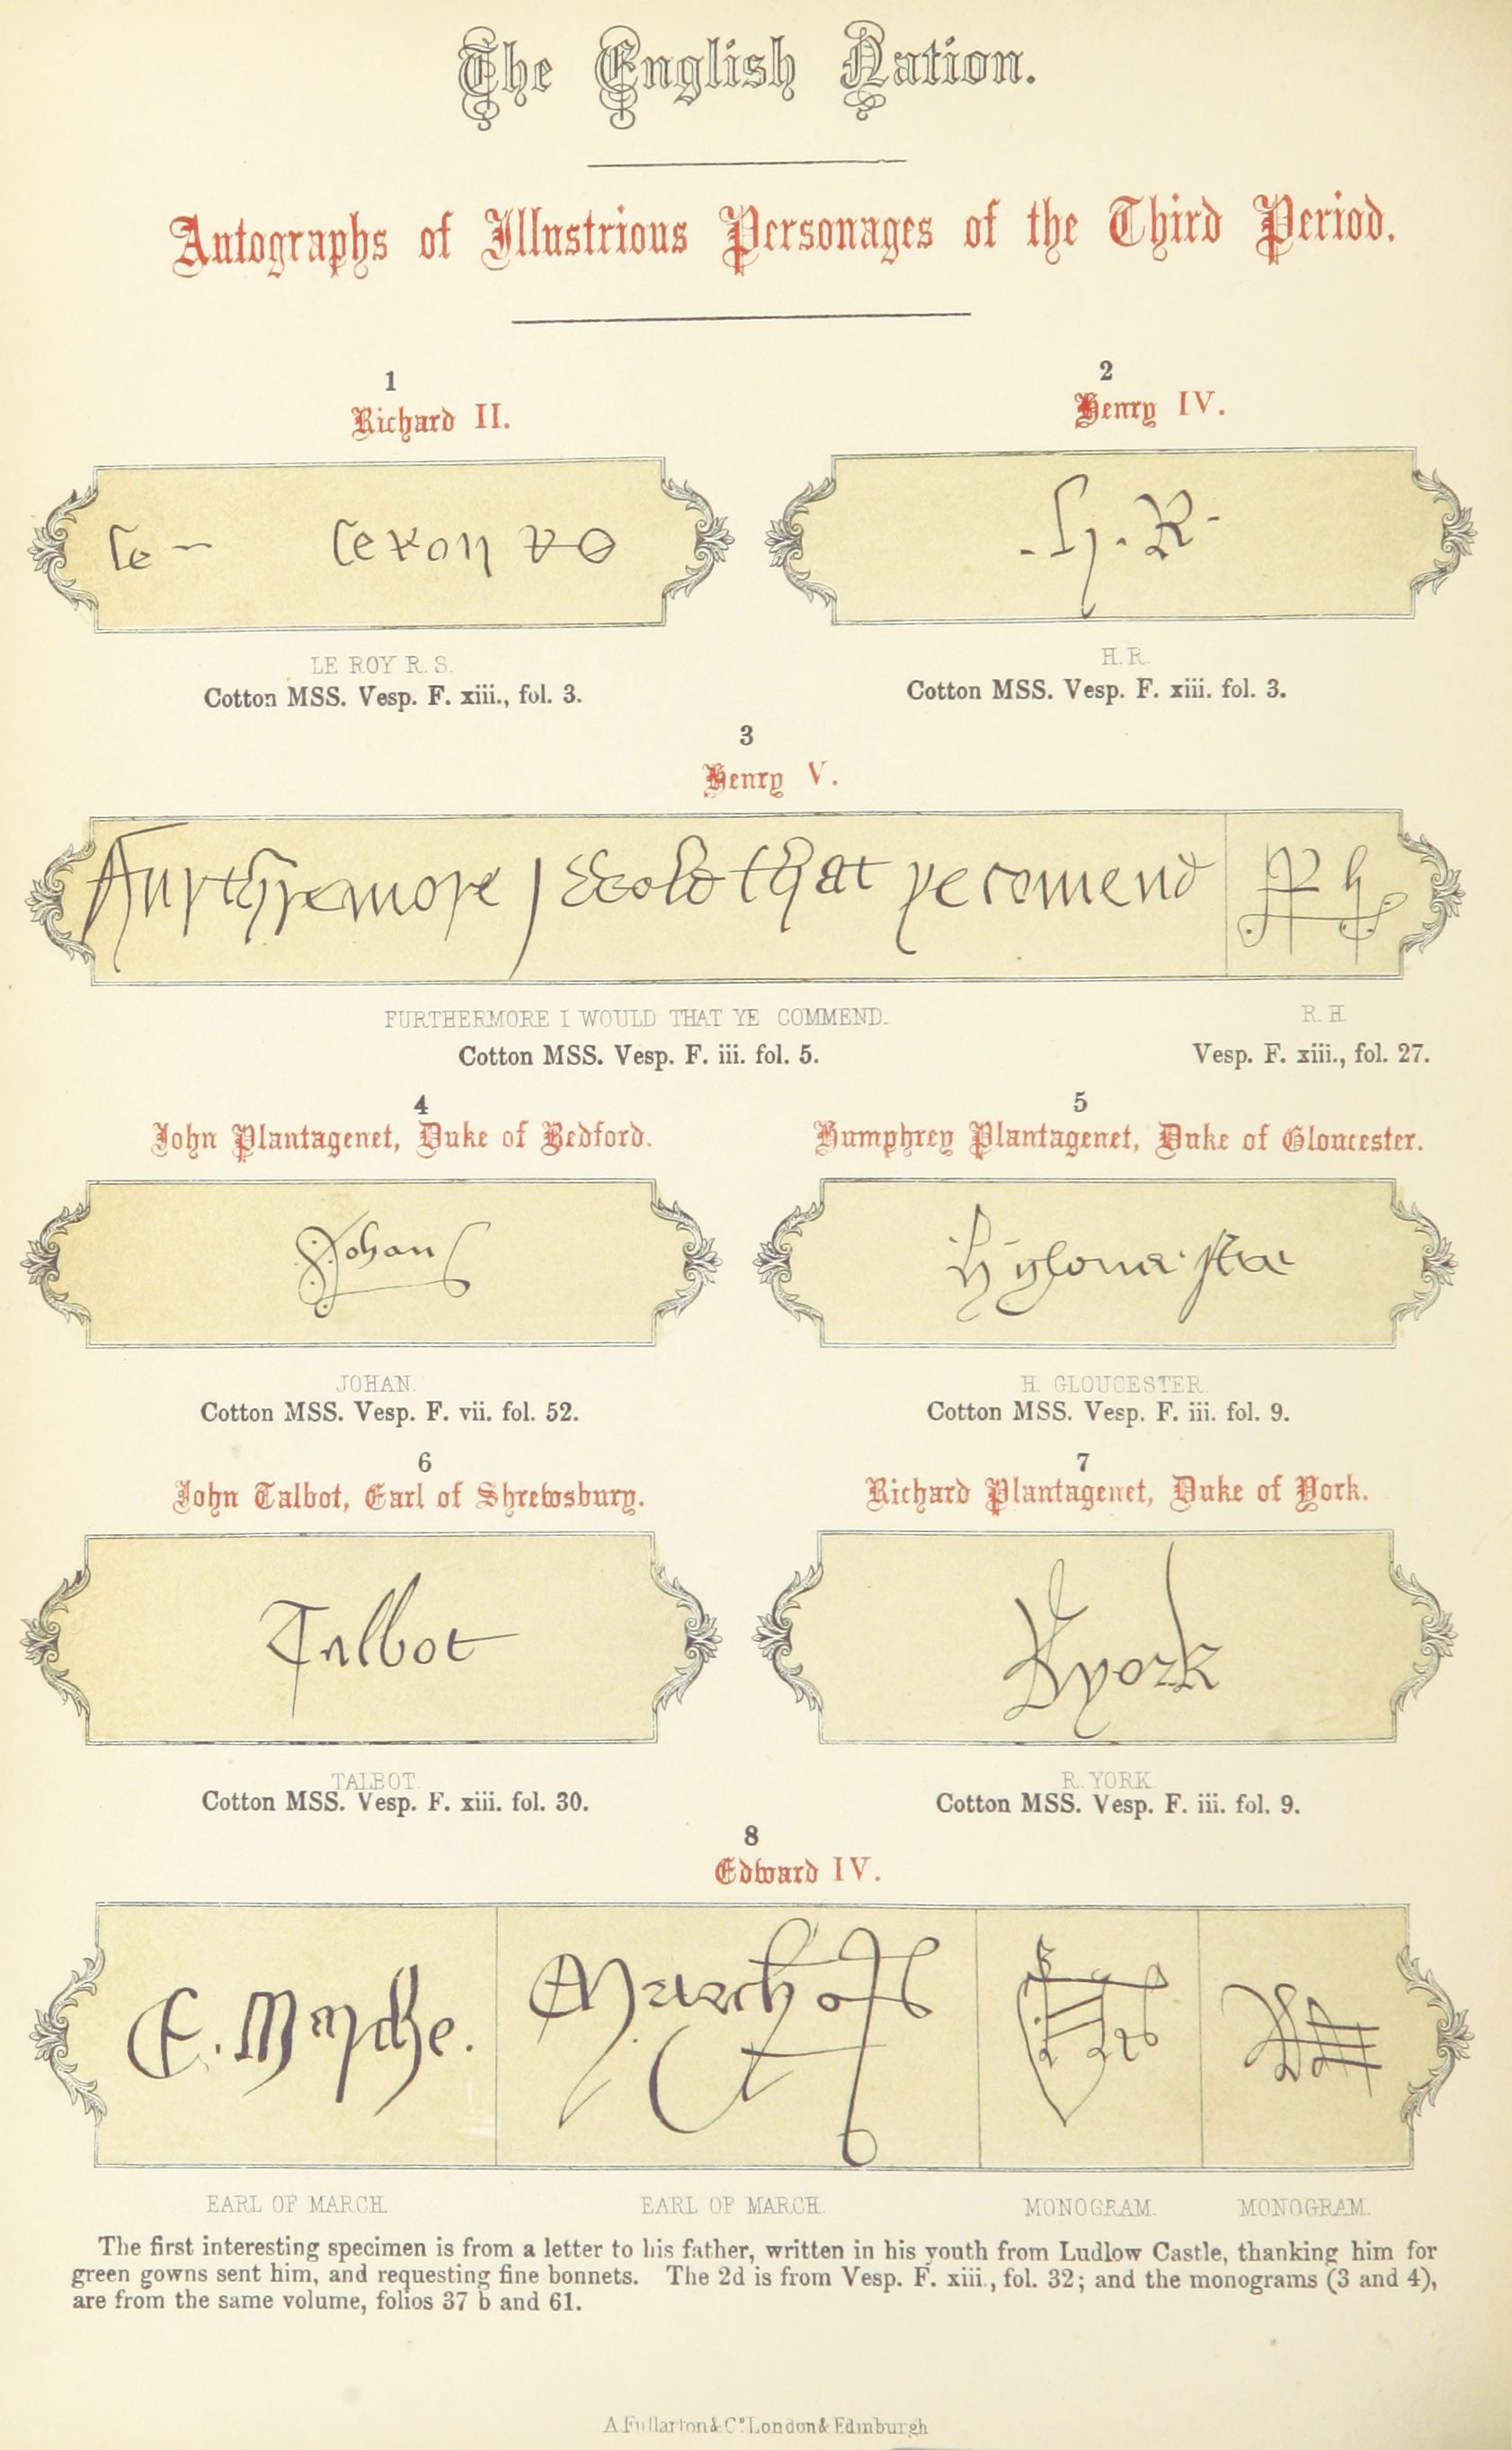 The English Nation.
Autographs of Illustrious Personages of the Third Period.
1
Richard II.
LE ROY R. S.
Cotton MSS. Vesp. F. xiii., fol. 3.
2
Henry IV.
H. R.
H. R.
Cotton MSS. Vesp. F. xiii. fol. 3.
3
Henry V.
that ye comend
R h
FURTHERMORE I WOULD THAT YE COMMEND.
R. H
Cotton MSS. Vesp. F. iii. fol. 5.
Vesp. F. xiii., fol. 27.
4
John Plantagenet, Duke of Bedford.
Johan
JOHAN.
Cotton MSS. Vesp. F. vii. fol. 52.
5
Humphrey Plantagenet, Duke of Gloucester.
H. GLOUCESTER.
Cotton MSS. Vesp. F. iii. fol. 9.
6
John Talbot, Earl of Shrewsbury.
Talbot
TALBOT.
Cotton MSS. Vesp. F. xiii. fol. 30.
7
Richard Plantagenet, Duke of York.
R york
R. YORK
Cotton MSS. Vesp. F. iii. fol. 9.
8
Edward IV.
E. Marche.
EARL OF MARCH.
EARL OF MARCH.
MONOGRAM.
MONOGRAM.
The first interesting specimen is from a letter to his father, written in his youth from Ludlow Castle, thanking him for
green gowns sent him, and requesting fine bonnets. The 2d is from Vesp. F. xiii., fol. 32; and the monograms (3 and 4),
are from the same volume, folios 37 b and 61.
A. Fullarton & Co. London & Edinburgh